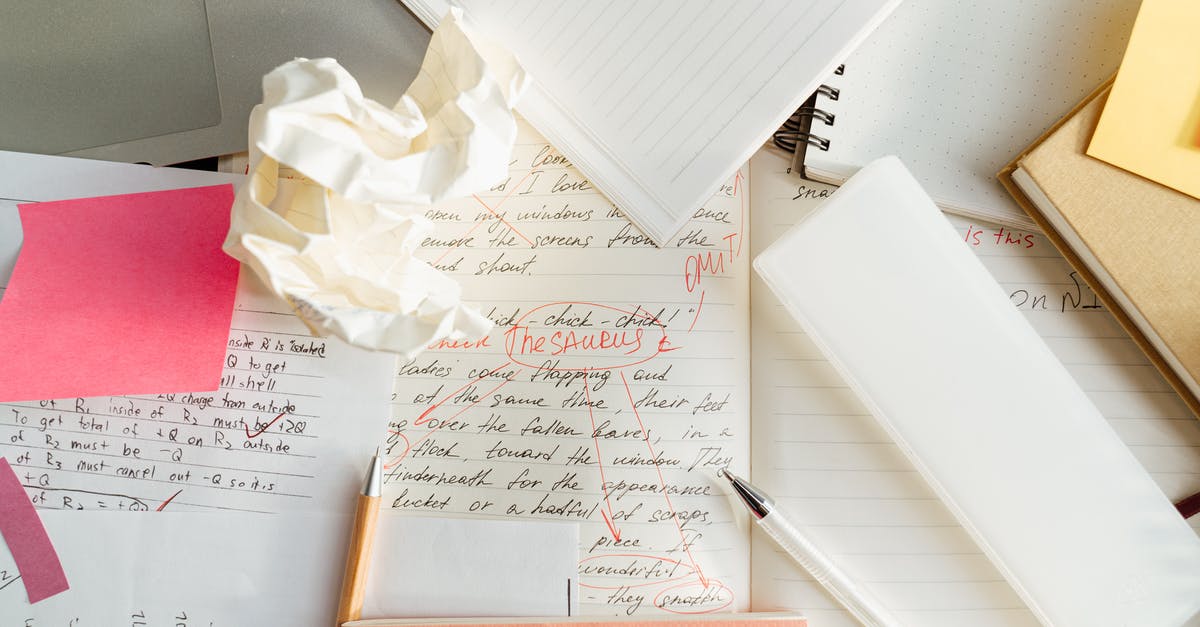 nside Ri is isolated
Q to get
ll shell
of R1 inside of R2 must be +2Q
To get total of +Q on R2 outside
of R2 must be -Q
of R3 must cancel out -Q so it is
+Q
of R2 = +Q
I love
open my windows in once
emove the screens from the
and shout.
OMIT
ick - chick - chick! "
check Thesaurus
ladies come flapping and
at the same time, their feet
over the fallen leaves, in a
flock, toward the window. They
underneath for the appearance
bucket or a hatful of scraps,
piece. If
wonderful
- they snatch
sna
is this
on